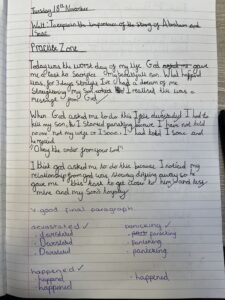 Tuesday 18th November
Walt: To explain the importance of the story of Abraham and Isaac.
Practise Zone
Today was the worst day of my life God asked me gave
me a task to Sacrifice my son. What happend
was, for 3 days Straight I've had a dream of me
Straughtering my Son I realised this was a
message from God
When God asked me to do this I felt I had to
kill my Son, So I Started panicking because I have not told
no one not my wife or Isaac. I told Isaac and
he replied
"Obey the order from your lord"
I think god asked me to do this because I noticed my
relationship from god was slowley drifting away so he
gave me this task to get closer to him and test
mine and my Son's loyalty
V. good final paragraph
panicking ✓
panicking
panicking
panicking
happened ✓
happend
happened
happened